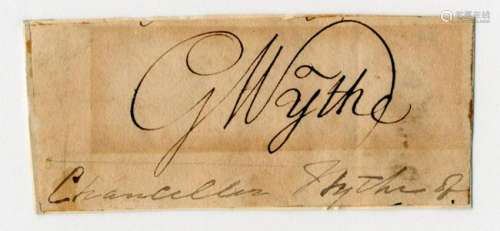 G Wythe
Chancellor Wythe of